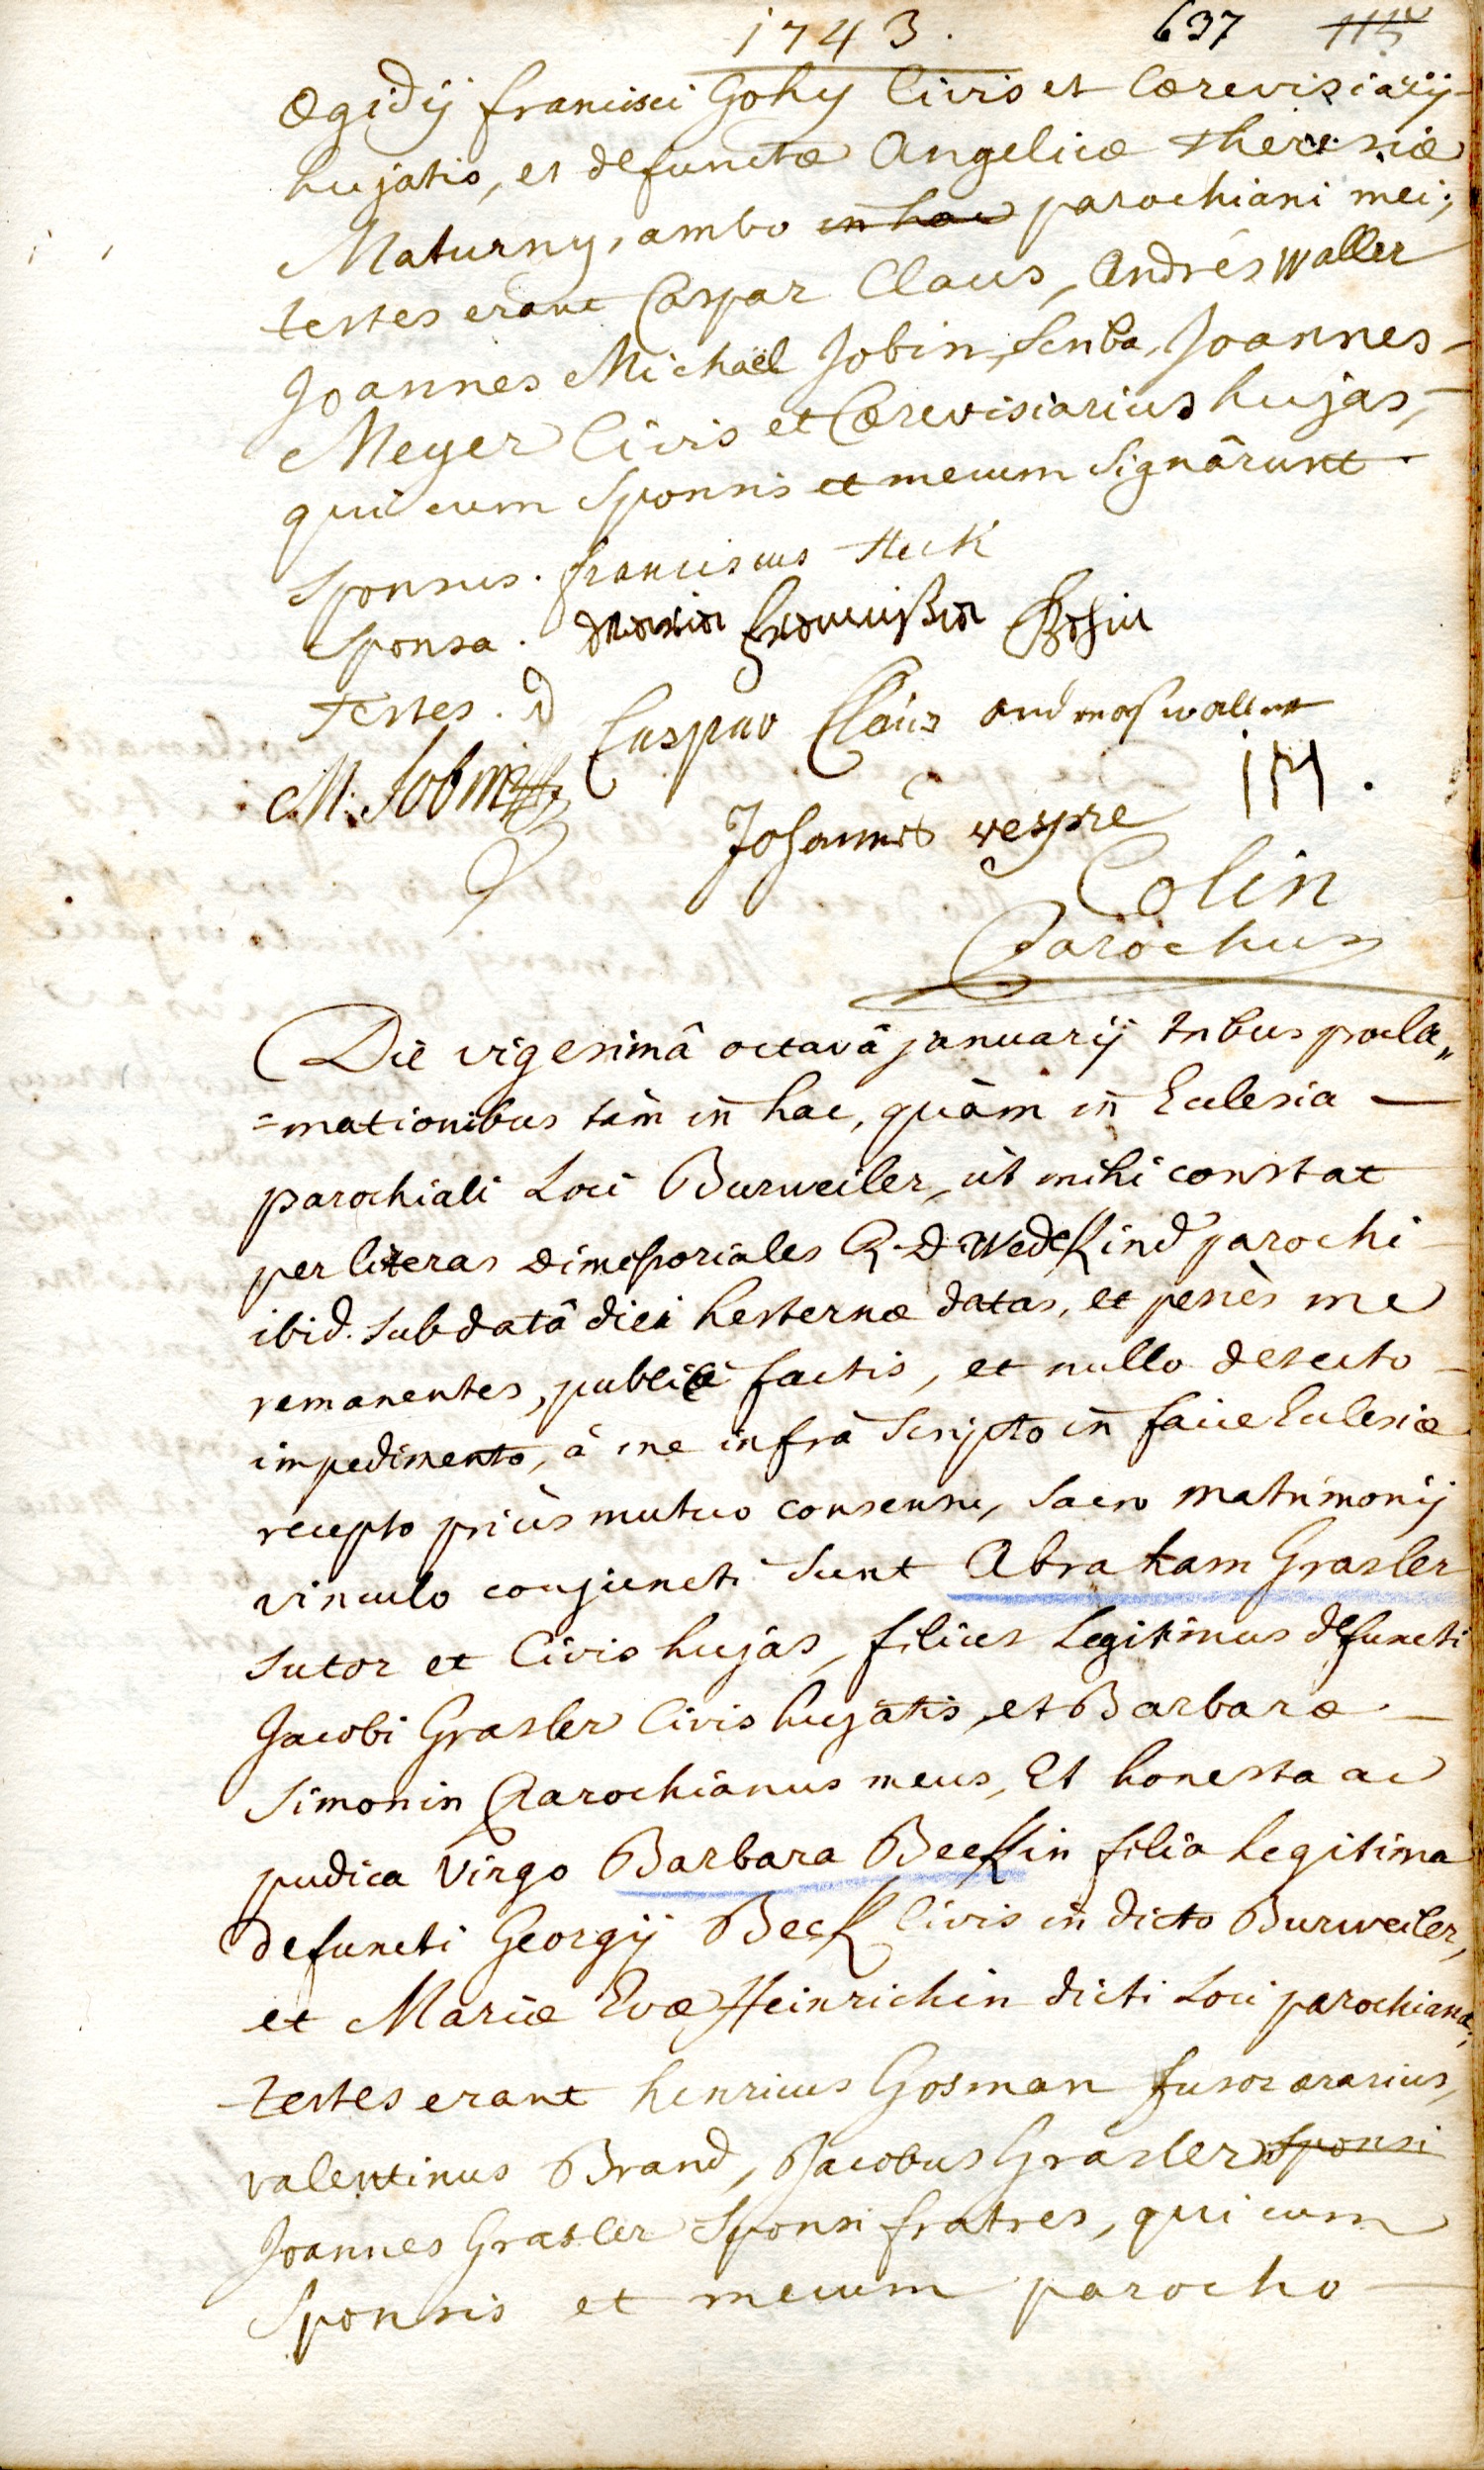 1743. 637 115
Ægidij francisci Gohy Civis et Cærevisiarij
hujatis, et defunctæ Angelicæ theresiæ
Maturny, ambo in hac parochiani mei;
testes erant Caspar Claus, Andrés Waller
Joannes Michaël Jobin, Scriba, Joannes -
Meyer Civis et Cærevisiarius hujas,
qui cum Sponsis et mecum Signârunt.
Sponsus. franciscus Heck
Sponsa. Maria
testes. Caspar Claus andreas waller
M. Jobin
Johannes IM.
Colin
Parochus
Die vigesimâ octavâ januarij tribus procla„
=mationibus tàm in hac, quàm in Ecclesia —
parochiali Loci Burweiler, ùt mihi constat
per literas dimissoriales R. D. Wedekind parochi
ibid. sub datâ diei hesternæ datas, et penès me
remanentes, publicè factis, et nullo detecto -
impedimento, à me infrà Scripto in facie Ecclesiæ
recepto priùs mutuo consensu, Sacro matrimonij
vinculo conjuncti Sunt Abraham Grasler
Sutor et Civis hujas, filius Legitimus defuncti
Jacobi Grasler Civis hujatis, et Barbaræ -
Simonin Parochianus meus, Et honesta ac
pudica Virgo Barbara Beckin filia Legitima
defuncti Georgij Beck Civis in dicto Burweiler,
et Mariæ Evæ Heinrichin dicti Loci parochiana;
testes erant henricus Gosman fusor ærarius,
valentinus Brand, Jacobus Grasler Sponsi
Joannes Grasler Sponsi fratres, qui cum
Sponsis et mecum parocho —